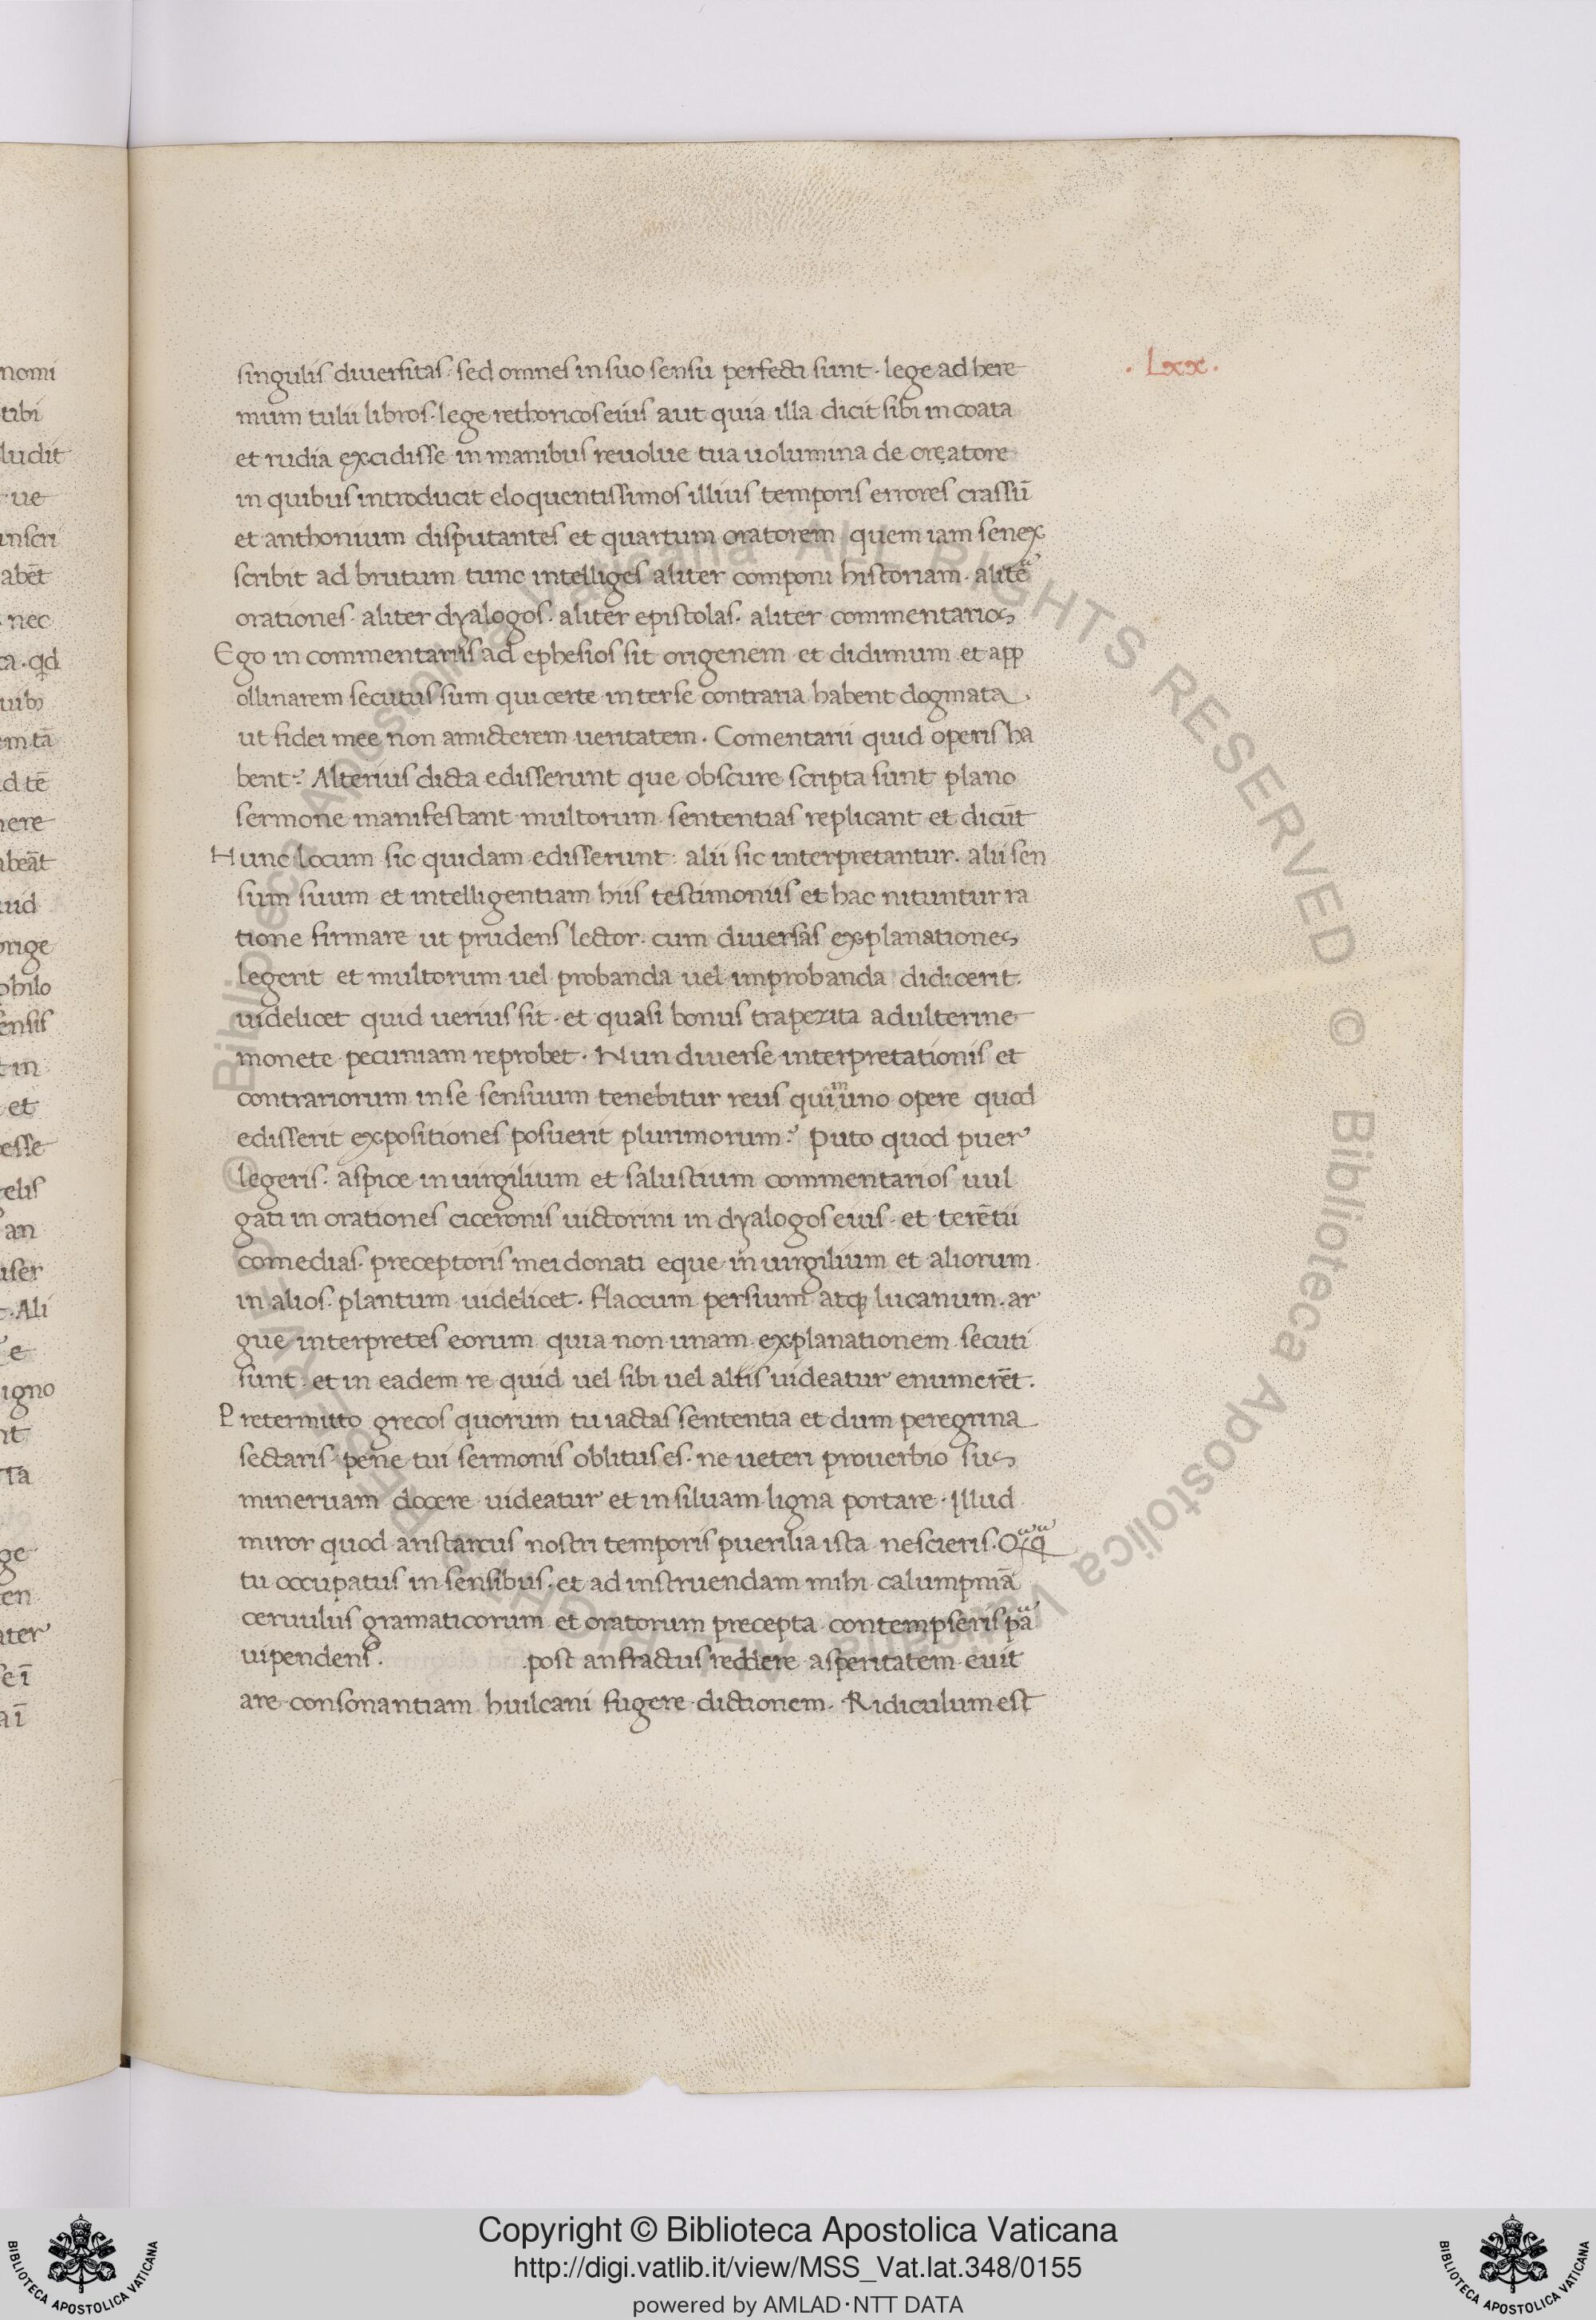 . Lxx .
singulis diuersitas. sed omnes in suo sensu perfecti sunt. lege ad here
mum tulii libros. lege rethoricos eius aut quia illa dicit sibi incoata
et rudia excidisse in manibus reuolue tua uolumina de oreatore
in quibus introducit eloquentissimos illius temporis errores crassū
et anthonium disputantes et quartum oratorem quem iam senex
scribit ad brutum tunc intelliges aliter componi historiam. alite᷑
orationes. aliter dyalogos. aliter epistolas. aliter commentarios
Ego in commentariis ad ephesios sit origenem et didimum et app
ollinarem secutus sum qui certe inter se contraria habent dogmata.
ut fidei mee non amicterem ueritatem. Comentarii quid operis ha
bent? Alterius dicta edisserunt que obscure scripta sunt plano
sermone manifestant multorum sententias replicant et dicūt
Hunc locum sic quidam edisserunt: alii sic interpretantur. alii sen
sum suum et intelligentiam hiis testimoniis et hac nituntur ra
tione firmare ut prudens lector. cum diuersas explanationes
legerit et multorum uel probanda uel improbanda didicerit.
uidelicet quid uerius sit. et quasi bonus trapezita adulterine
monete pecuniam reprobet. Nun diuerse interpretationis et
contrariorum in se sensuum tenebitur reus qui in uno opere quod
edisserit expositiones posuerit plurimorum? Puto quod puer
legeris. aspice in uirgilium et salustium commentarios uul
gati in orationes ciceronis uictorini in dyalogos euis. et terētii
comedias. preceptoris mei donati eque in uirgilium et aliorum
in alios. plantum uidelicet. flaccum persium atq; lucanum. ar
gue interpretes eorum quia non unam explanationem secuti
sunt. et in eadem re quid uel sibi uel altis uideatur enumerēt.
Pretermitto grecos quorum tu iactas sententia et dum peregrina
sectaris. pene tui sermonis oblitus es. ne ueteri prouerbio sus
mineruam docere uideatur et in siluam ligna portare. Illud
miror quod aristarcus nostri temporis puerilia ista nescieris.
tu occupatus in sensibus. et ad instruendam mihi calumpniā
ceruulus gramaticorum et oratorum precepta contempseris pa
uipendens. post anfractus reddere asperitatem euit
are consonantiam huilcani fugere dictionem. Ridiculum est
nomi
tibi
ludit
ue
inscri
abēt
nec
ta. qd
uib;
em tā
d tē
nere
abeāt
uid
orige
philo
ensis
t in
et
esse
elis
an
user
t. Ali
e
igno
nt
ia
ge
en
ater
se ī
a ī
© Biblioteca Apostolica Vaticana ALL RIGHTS RESERVED © Biblioteca Apostolica Vaticana ALL RIGHTS RESERVED
BIBLIOTECA APOSTOLICA VATICANA
Copyright © Biblioteca Apostolica Vaticana
http://digi.vatlib.it/view/MSS_Vat.lat.348/0155
powered by AMLAD·NTT DATA
BIBLIOTECA APOSTOLICA VATICANA